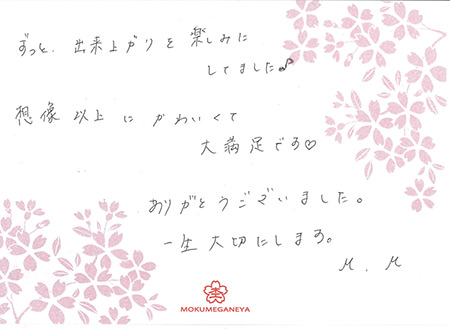 ずっと、出来上がりを楽しみに
してました♪
想像以上にかわいくて
大満足です♡
ありがとうございました。
一生大切にします。
M.M
MOKUMEGANEYA